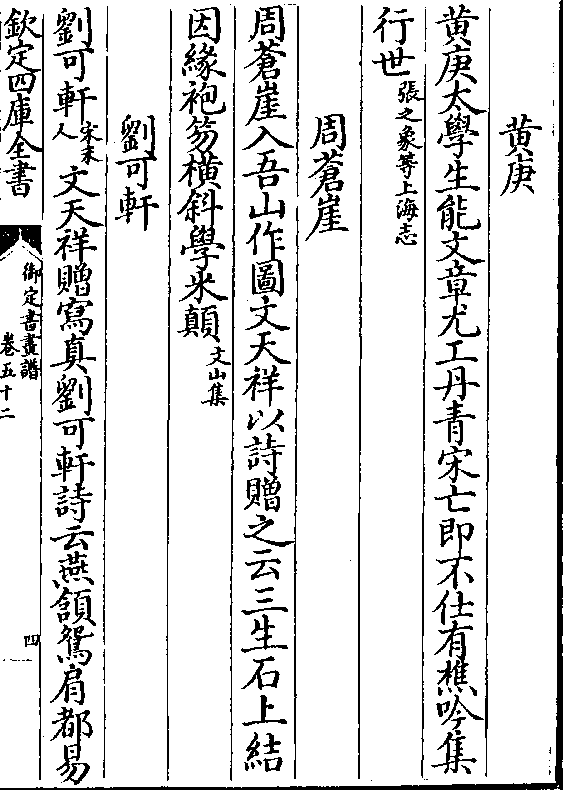 黄庚
黄庚太學生能文章尤工丹青宋亡即不仕有樵吟集
行世張之象等上海志
周蒼崖
周蒼崖入吾山作圖文天祥以詩贈之云三生石上結
因緣袍笏横斜學米顛文山集
劉可軒
劉可軒宋末人文天祥贈寫真劉可軒詩云燕頷鳶肩都易
欽定四庫全書
御定書畫譜
卷五十二
四